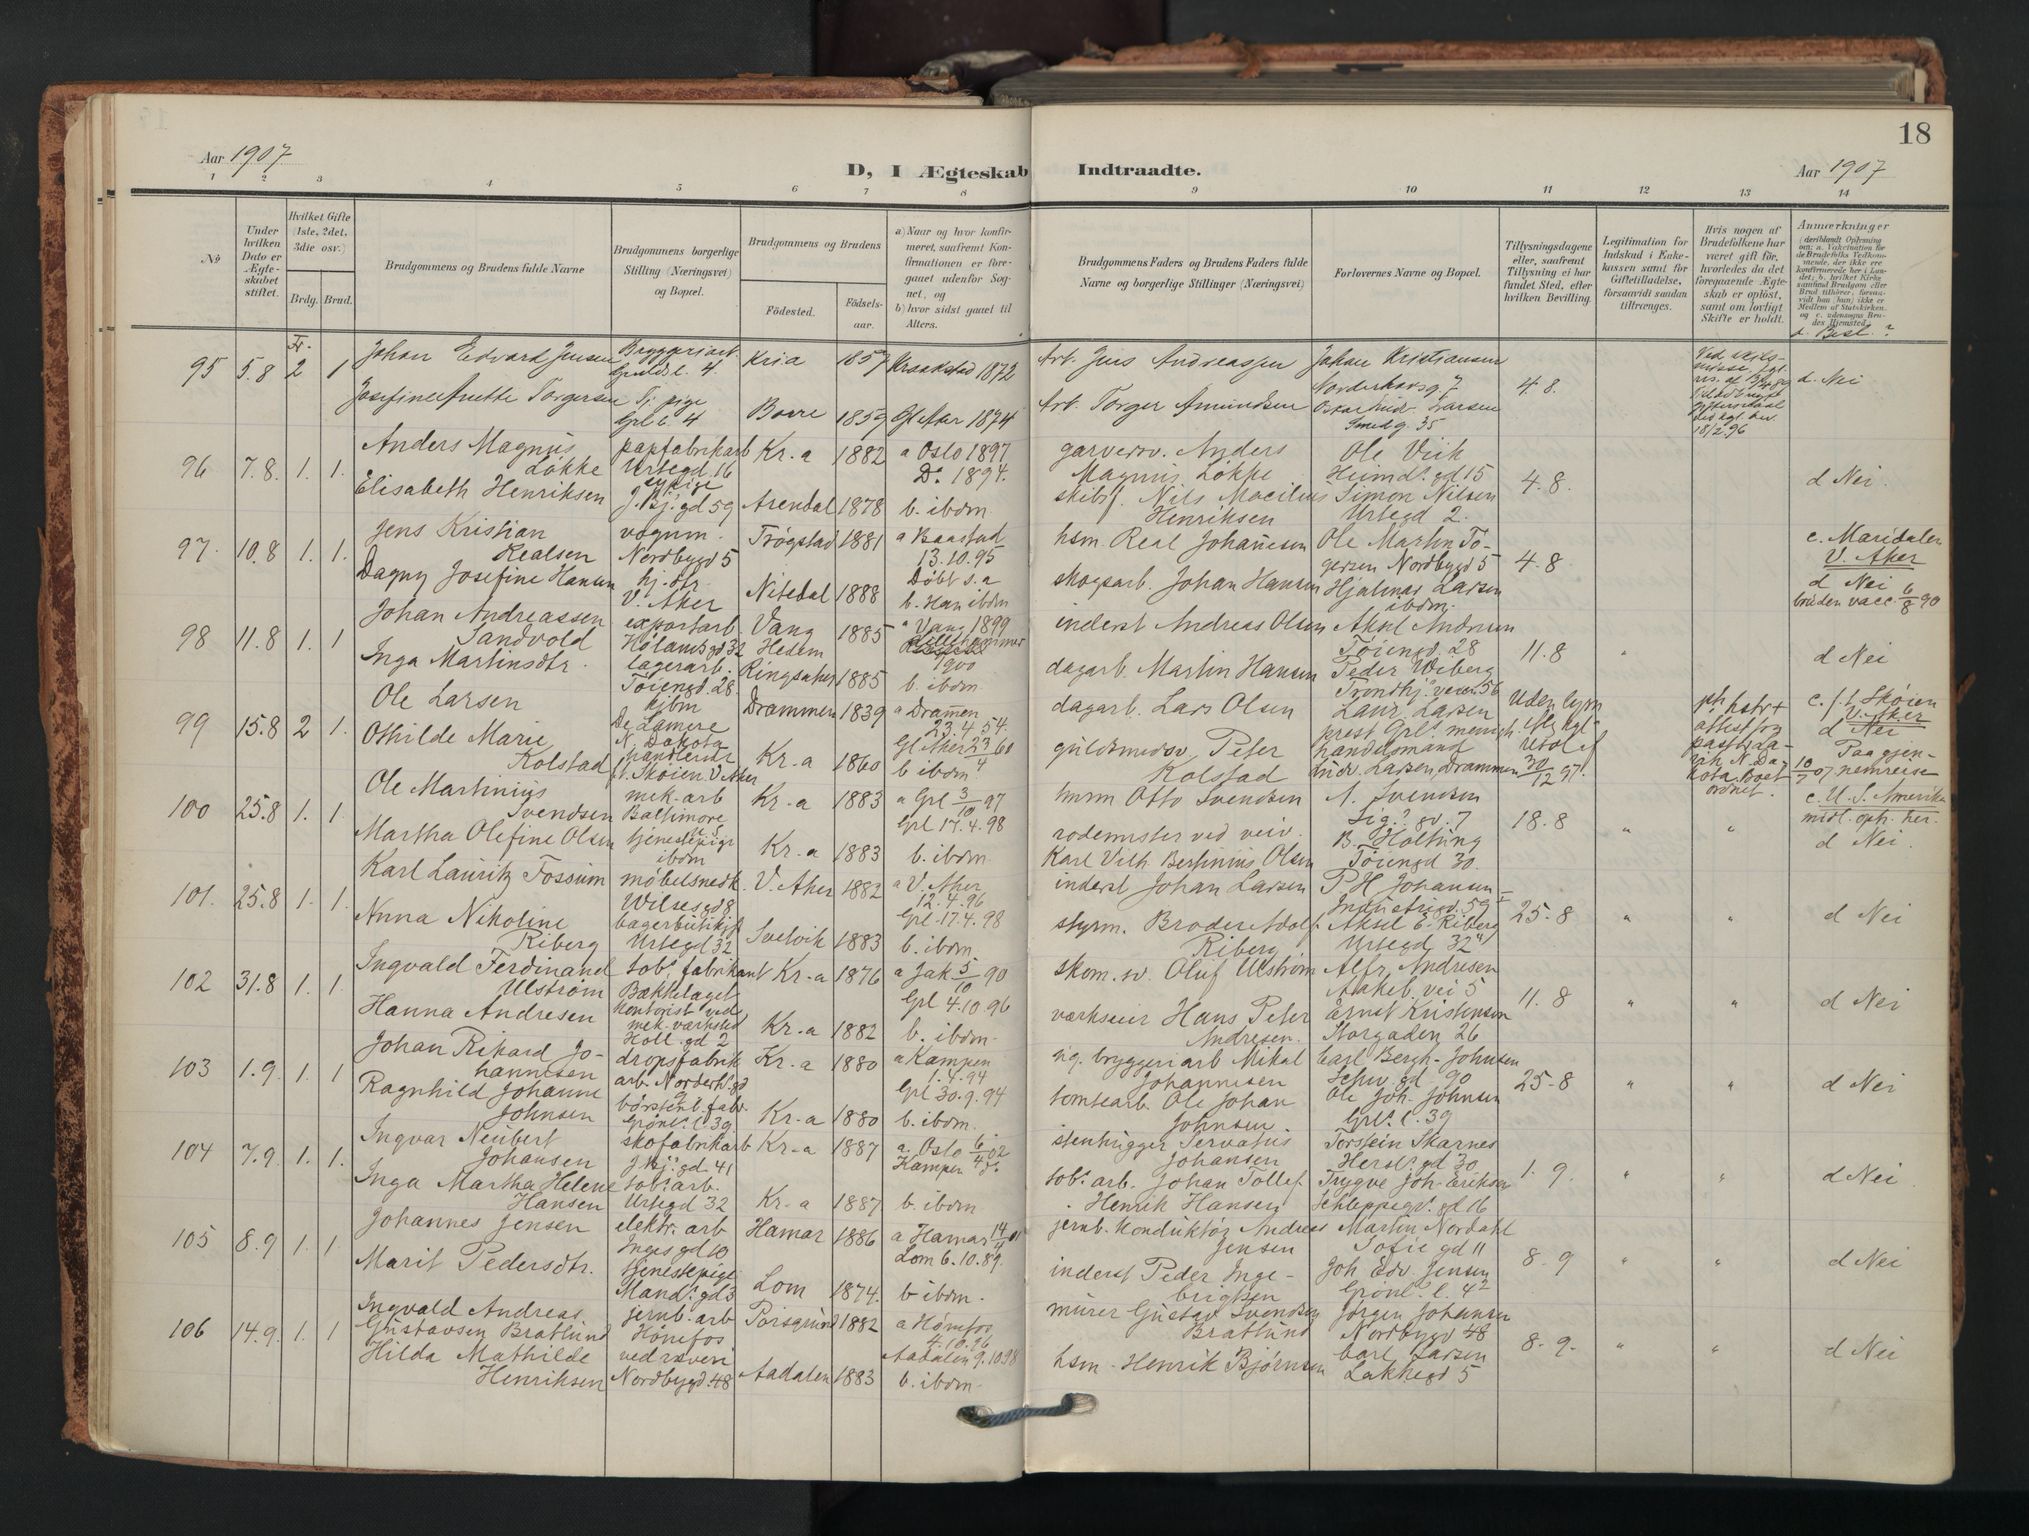 18
Aar 1907
D, I Ægteskab Indtraadte.
Aar 1907
1 2 3 4 5 6 7 8 9 10 11 12 13 14
No
Under hvilken Dato er Ægteskabet stiftet.
Hvilket Gifte (1ste, 2det, 3die osv.)
Brdg. Brud.
Brudgommens og Brudens fulde Navne
Brudgommens borgerlige Stilling (Næringsvei) og Bopæl.
Brudgommens og Brudens
Fødested.
Fødselsaar.
a) Naar og hvor konfirmeret, saafremt Konfirmationen er foregaaet udenfor Sognet, og
b) hvor sidst gaaet til Alters.
Brudgommens Faders og Brudens Faders fulde Navne og borgerlige Stillinger (Næringsvei)
Forlovernes Navne og Bopæl.
Tillysningsdagene eller, saafremt Tillysning ei har fundet Sted, efter hvilken Bevilling.
Legitimation for Indskud i Enkekassen samt for Giftetilladelse, forsaavidt saadan tiltrænges.
Hvis nogen af Brudefolkene har været gift før, hvorledes da det foregaaende Ægteskab er opløst, samt om lovligt Skifte er holdt.
Anmærkninger
d. Besl. ?
95 5.8 Fr. 2 1
Johan Edvard Jensen
Bryggeriarb.
Kria 1857 Kraakstad 1872
Arb. Jens Andreassen
Johan Kristiansen
4.8.
d. Nei
Josefine Anette Torgersen
Tj. pige
Grl l. 4
1859 Gl Aker 1874
Arb. Torger Amundsen
Smedg. 35
18/2.96
96 7.8. 1. 1.
Anders Magnus
Løkke
papfabrikarb
Urtegd. 16
Kr.a 1882 a Oslo 1897
Do 1894.
garversv. Anders
Magnus Løkke
Ole Viik
Heimd.s gd 15
4.8.
d Nei.
Elisabeth Henriksen
sypige
J. Bj.s gd 59
Arendal 1878 b. ibdm.
skibsf. Nils Macilius
Henriksen
Simon Nilsen
Urtegd 2.
97. 10.8 1. 1.
Jens Kristian
Realsen
vognm.
Nordbygd 5
Trøgstad 1881 a Baastad
13.10.95
hsm. Real Johannesen
Ole Martin To-
gersen Nordbygd 5
4.8
c. Maridalen
V. Aker
d Nei
bruden vacc. 6/8 90
Dagny Josefine Hansen
hj. dtr.
V. Aker
Nitedal 1888 Døbt s.a
b. Han ibdm
skogsarb. Johan Hansen
Hjalmar Larsen
ibdm.
98 11.8 1. 1
Johan Andreassen
Sandvold
exportarb
Vang
Hedem
1885 a Vang 1899
inderst Andreas Olsen
Tøiengd. 28
11.8
"
d Nei
Inga Martinsdtr.
lagerarb.
Tøiengd. 28
Ringsaker 1885
1900
b. ibdm
dagarb. Martin Hansen
Peder Wiberg
Trondhj.s veien 56
99 15.8 2 1.
Ole Larsen
kjbm
De Lamere
N. Dakota
Drammen 1839 a Drammen
23.4.54.
dagarb. Lars Olsen
Laur. Larsen
prest Grl.s menigh.
Uden lysn
30/12 97.
V. Aker
d Nei
Othilde Marie
Kolstad
handlerske
Kr.a 1860 Gl Aker 23/4 60
b ibdm
guldsmedsv. Peter
Kolstad
handelsmand
Ludv. Larsen, Drammen
ordnet.
Paa gjen-
nemreise
10/7 07
100 25.8 1. 1.
Ole Martinius
Svendsen
mek. arb
Baltimore
Kr.a 1883 a Grl 3/10 97
Otto Svendsen
A. Svendsen
18.8
" "
c. U. S. Amerika
midl. oph. her.
d Nei.
Martha Olefine Olsen
tjenestepige
ibdm
Kr.a 1883 Grl 17.4.98
b. ibdm.
rodemester ved veiv.
Karl Vilh Bertinius Olsen
B. Holtung
Tøiengd 30.
101. 25.8 1. 1.
Karl Lauritz Fossum
møbelsnedk.
Wilsesgd 8
V. Aker 1882 a V. Aker
12.4.96
inderst Johan Larsen
P H Johansen
Industrigd. 59
25.8
" "
d Nei
Anna Nikoline
Riberg
Urtegd 32
Svelvik 1883 Grl 17.4.98
b. ibdm.
styrm. Broder Adolf
Riberg
Aksel E. Riberg
Urtegd 32
102 31.8 1. 1.
Ingvald Ferdinand
Ulstrøm
tob. fabrikant
Bækkelaget
Kr.a 1876 a Jak 5/10 90
skom. sv. Oluf Ulstrøm
Alfr. Andresen
Aakeb. vei 5
11.8
" "
d Nei
Hanna Andresen
kontorist ved
mek. værksted
Holl. gd 2
Kr.a 1882 Grl 4.10.96
b. ibdm.
værkseier Hans Peter
Andresen.
Ernst Kristensen
Storgaden 26
103 1.9. 1. 1
Johan Rikard Jo-
hannesen
dropsfabrik
arb. Norderh.s gd
9
Kr.a 1880 a Kampen
1.4.94
bryggeriarb Mikal
Johannesen
Carl Bergh-Johnsen
Schw gd. 90
25.8
" "
d Nei
Ragnhild Johanne
Johnsen
børstenb. fabr.
Grønl. l. 39
Kr.a 1880 Grl 30.9.94
b. ibdm.
tomtearb. Ole Johan
Johnsen
Ole Joh. Johnsen
Grl.s l. 39
104 7.9. 1. 1.
Ingvar Neubert
Johansen
skofabrikarb
J. Bj.s gd. 41
Kr.a 1887 a. Oslo 6/4 02
Kampen do
stenhugger Servatius
Johansen
Torstein Skarnes
Hersl.s gd 30
1.9.
" "
d Nei
Inga Martha Helene
Hansen
tob.s arb.
Urtegd 32
Kr.a 1887 b. ibdm
tob.s arb. Johan Tollef
Henrik Hansen
Trygve Joh. Eriksen
Schleppegr.s gd 16
105 8.9 1. 1.
Johannes Jensen
elektr. arb
Inges gd 10
Hamar 1886 a Hamar
jernb. konduktør Andreas
Jensen
Martin Nordahl
Sofie gd 11
8.9
" "
d Nei
Marit Pedersdtr.
tjenestepige
Mand.s gd 3
Lom 1874. Lom 6.10.89.
b ibdm.
inderst Peder Inge-
brigtsen
Joh. Edv. Jensen
Grønl.s l. 42
106 14.9. 1. 1
Ingvald Andreas
Gustavsen Bratlund
jernb. arb
Hønefos
Porsgrund 1882 a Hønefos
4.10.96
murer Gustav Svendsen
Bratlund
Jørgen Johansen
Nordbygd 48
8.9.
" "
d Nei
Hilda Mathilde
Henriksen
ved væveri
Nordbygd. 48
Aadalen 1883 Aadalen 9.10 98
b. ibdm.
hsm. Henrik Bjørnsen
Carl Larsen
Lakkegd 5